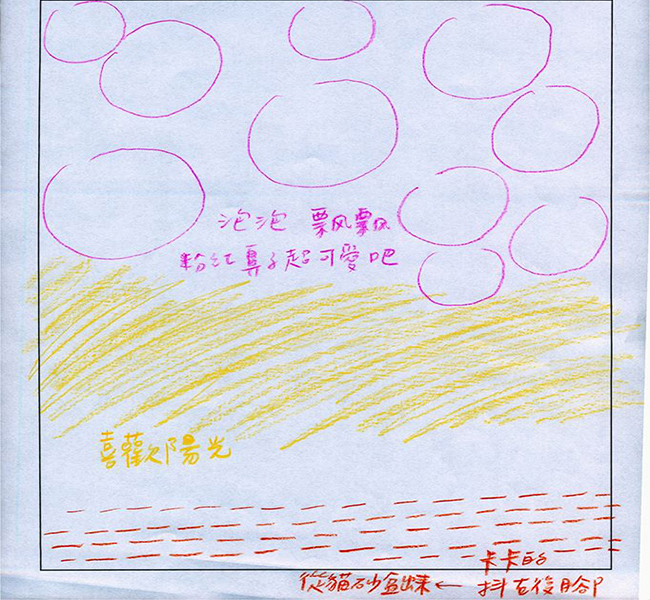 泡泡 飄飄
粉紅鼻子超可愛吧
喜歡陽光
卡卡的
從貓砂盆出來 ← 抖左後腳